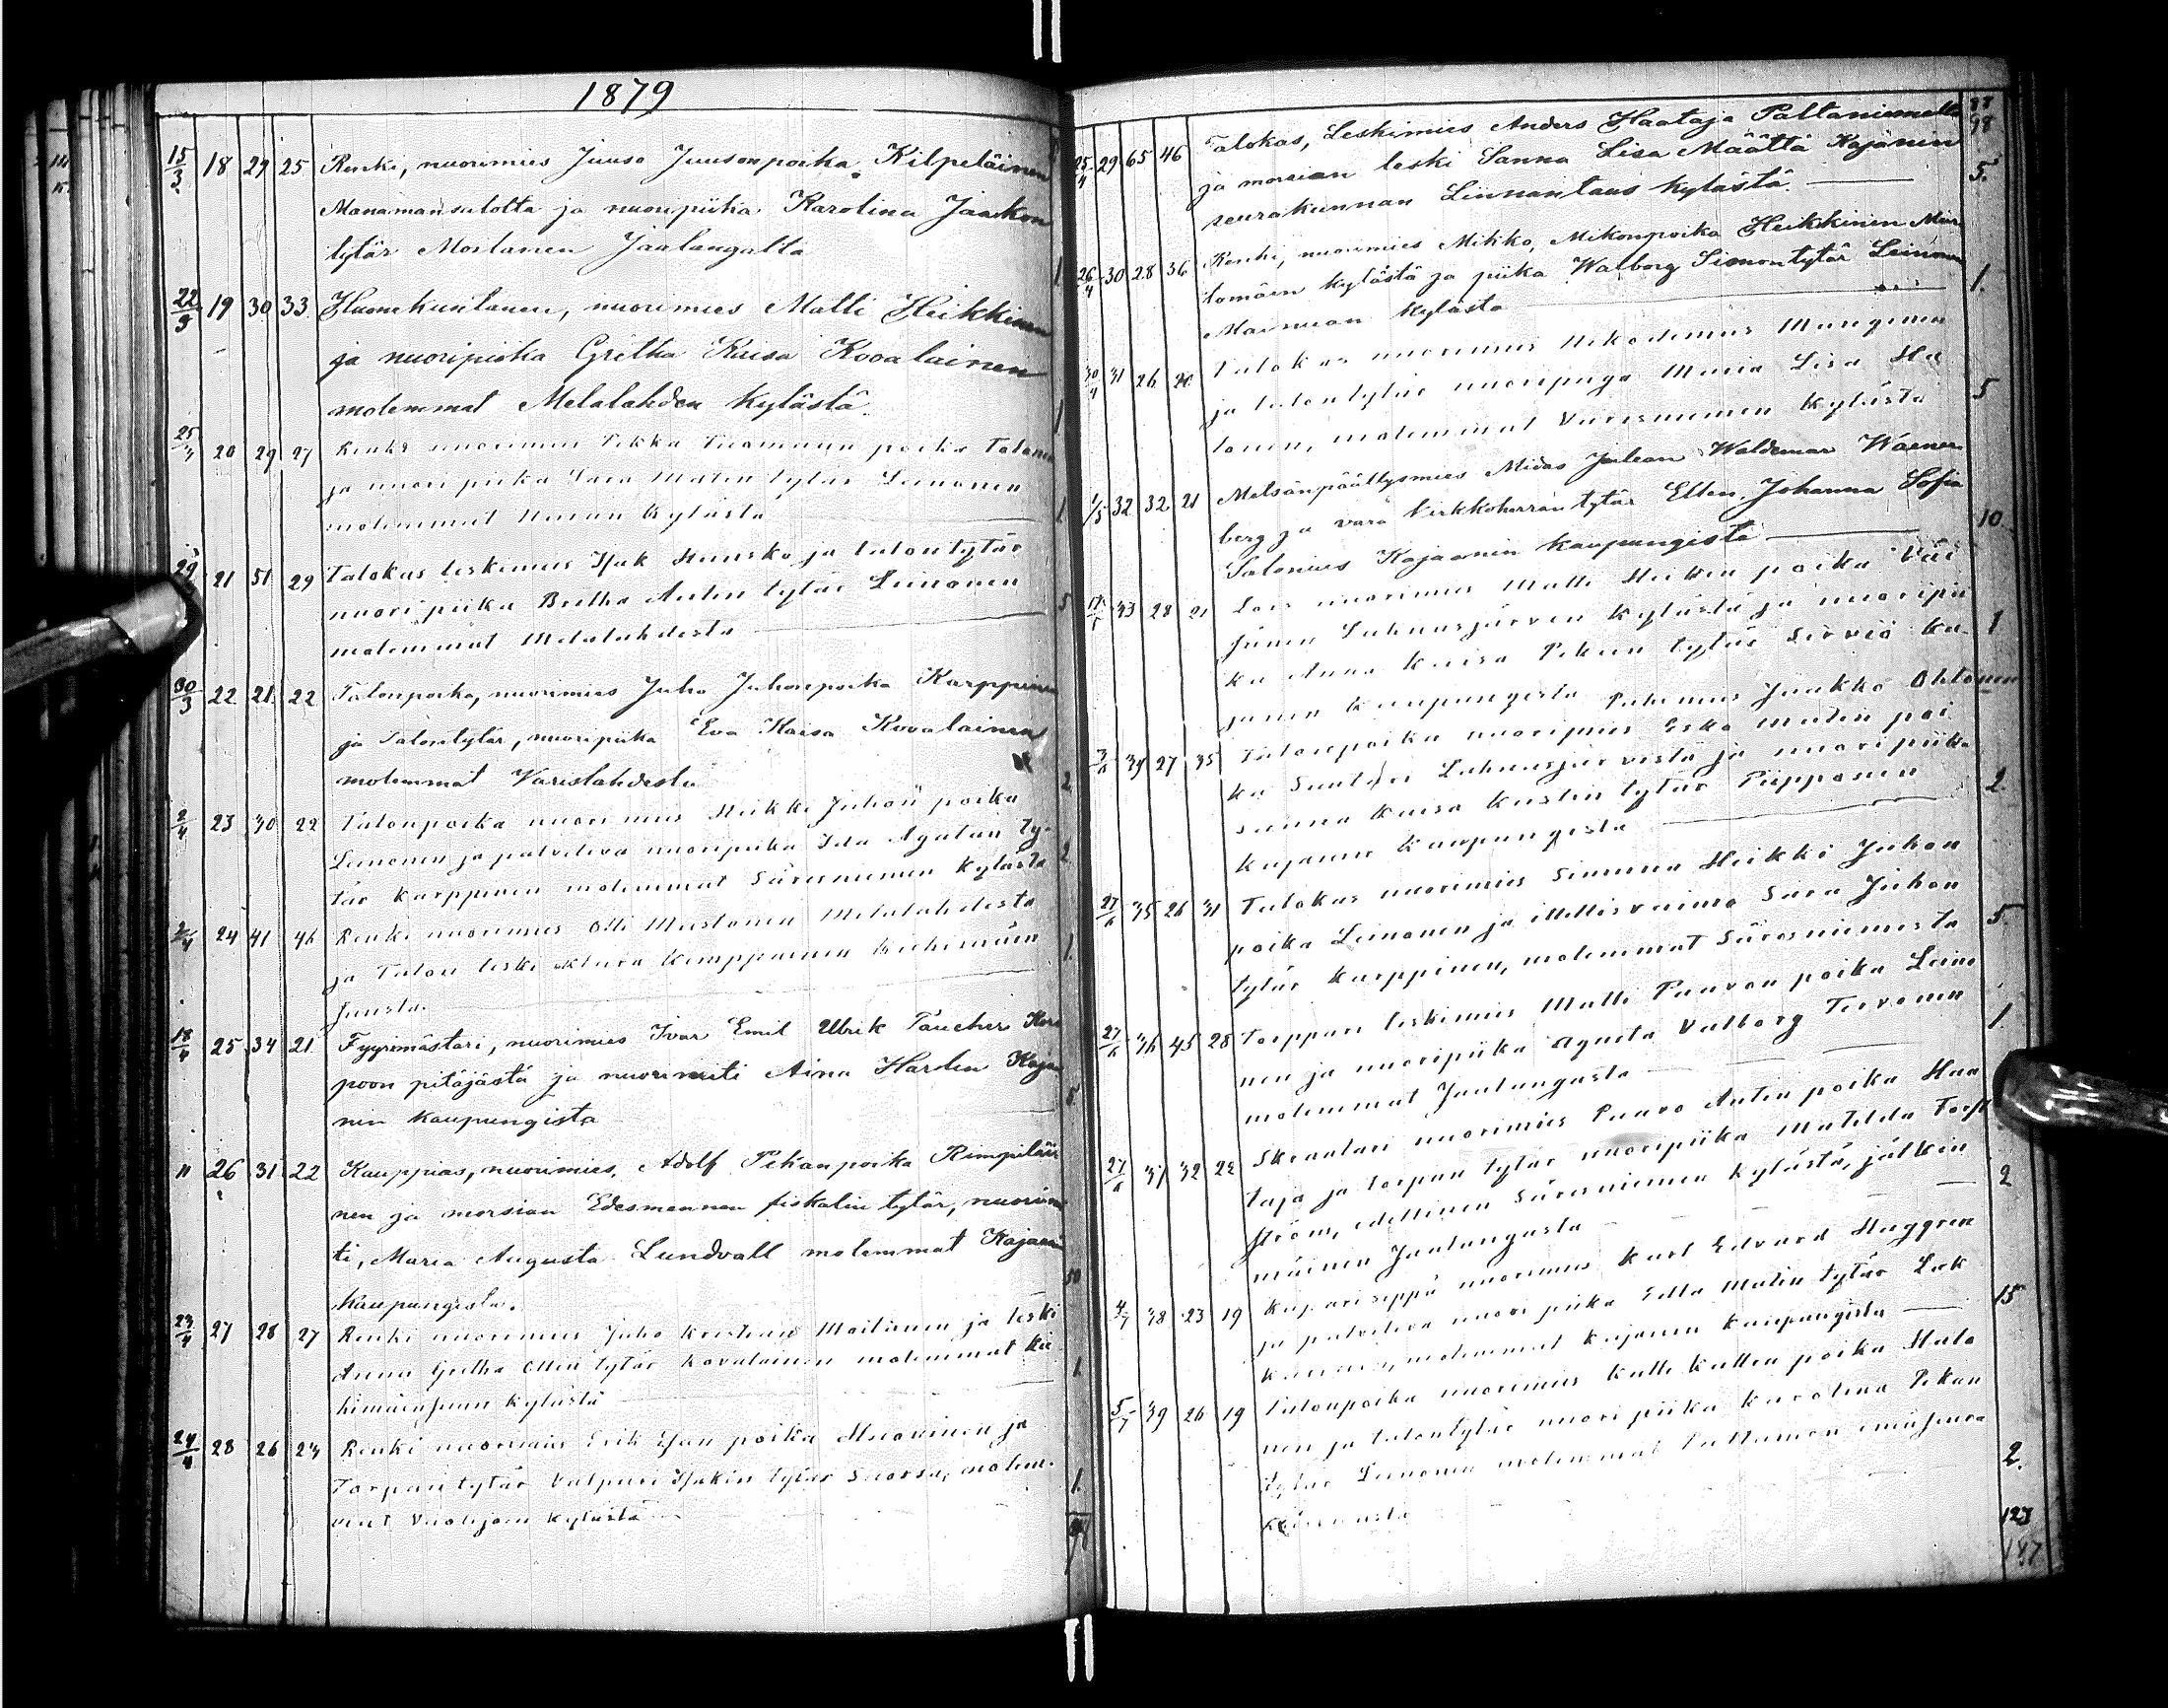 1879
15/3 18 29 25 Renki, nuorimies Juuso Juusonpoika Kilpeläinen
Manamansalolta ja nuoripiika Karolina Jaakon
tytär Mustonen Jaalangalta
22/3 19 30 33 Huonekuntanen, nuorimies Matti Heikkinen
ja nuoripiika Gretha Kaisa Kovalainen
molemmat Melalahden kylästä 1
25/3 20 29 27 Renki nuorimies Pekka Tuomaan poika
ja nuori piika Sara Matin tytär Leinonen
molemmat kylästä 1.
29 21 51 29 Talokas leskimies Isak Hunsko ja talontytär
nuori piika Bretha Antin tytär Leinonen 5
molemmat Melalahdesta
30/3 22 21 22 Talonpoika, nuorimies Juho Juhonpoika Karppinen
ja Talontytär, nuoripiika Eva Kaisa Kovalainen
molemmat Varislahdesta 2
2/4 23 30 22 Talonpoika nuorimies Heikki Juhon poika
Leinonen ja palveleva nuoripiika Ida Agatan ty-
tär Karppinen molemmat Säresniemen kylästä 2
24 41 46 Renki nuorimies Olli Mustonen Melalahdesta
ja Talon leski Klara Kemppainen Kiehimäen 1.
suusta.
18/4 25 34 21 Fyyrimästari, nuorimies Ivar Emil Ulrik Taucher Kor
poon pitäjästä ja nuorineiti Aina Harlin Kaja
nin kaupungista
11 26 31 22 Kauppias, nuorimies, Adolf Pekanpoika Rimpiläi
nen ja morsian Edesmennen fiskalin tytär, nuorinei
ti, Maria Augusta Lundvall molemmat Kajaanin
kaupungista. 50
23/4 27 28 27 Renki nuorimies Juho Kristian Moilanen ja leski
Anna Gretha Ollin tytär Kovalainen molemmat Kie
himäensuun kylästä 1
24/4 28 26 23 Renki nuorimies Erik poika ja
Torpan tytär Valpuri Isakin tytär molem-
mat Vuolijoen kylästä 1.
25/4 29 65 46 Talokas, Leskimies Anders Haataja Paltaniemeltä 98
ja morsian leski Sanna Lisa Määttä Kajanin
seurakunnan Linnantaus kylästä 5.
26/4 30 28 36 Renki, nuorimies Mikko, Mikonpoika Heikkinen Mie
lomäen kylästä ja piika Walborg Simontytär Leinonen
Mainuan kylästä 1.
30/4 31 26 20 Talokas nuorimies Nikodemus Manginen
ja talontytär nuoripiiga Maria Lisa
tonen, molemmat Varisniemen kylästä 5
1/5 32 32 21 Metsänpäällysmies Midas Julean Waldemar Waenen
berg ja vara kirkkoherran tytär Ellen Johanna Sofia
Salonius Kajaanin kaupungista 10.
33 28 21 Lois nuorimies Matti Heikin poika Väi
sänen Lahnasjärven kylästä ja nuoripii
ka Anna Kaisa Pekan tytär Sirviö Ka- 1
janin kaupungista Puhemies Jaakko Ohtonen
34 27 35 Talonpoika nuorimies Eska Matin poi
ka Lahnasjärvestä ja nuoripiika
Sanna Kaisa Kustin tytär Piipponen 2.
Kajanin kaupungista
27/6 35 26 31 Talokas nuorimies Simuna Heikki Juhon
poika Leinonen ja itsellisvaimo Sara Juhon 5
tytär Karppinen, molemmat Säresniemestä
27/6 36 45 28 Torppari leskimies Matti Paavon poika Leino
nen ja nuoripiika Agneta Valborg Tervonen 1
molemmat Jaalangasta
27/6 37 32 22 Skraatari nuorimies Paavo Antin poika Haa
taja ja torpan tytär nuoripiika Matilda Forss
ström, edellinen Säresniemen kylästä, jälkim 2
mäinen Jaalangasta
4/7 38 23 19 Kupariseppä nuorimies Karl Edvard Haggren
ja palveleva nuori piika Edla Matin tytär Luk 15
karinen, molemmat Kajanin kaupungista
5/7 39 26 19 Talonpoika nuorimies Kalle Kallen poika Halo
nen ja talontytär nuori piika Karolina Pekan
tytär Leinonen molemmat Paltamon emäseura 2.
kunnasta
123